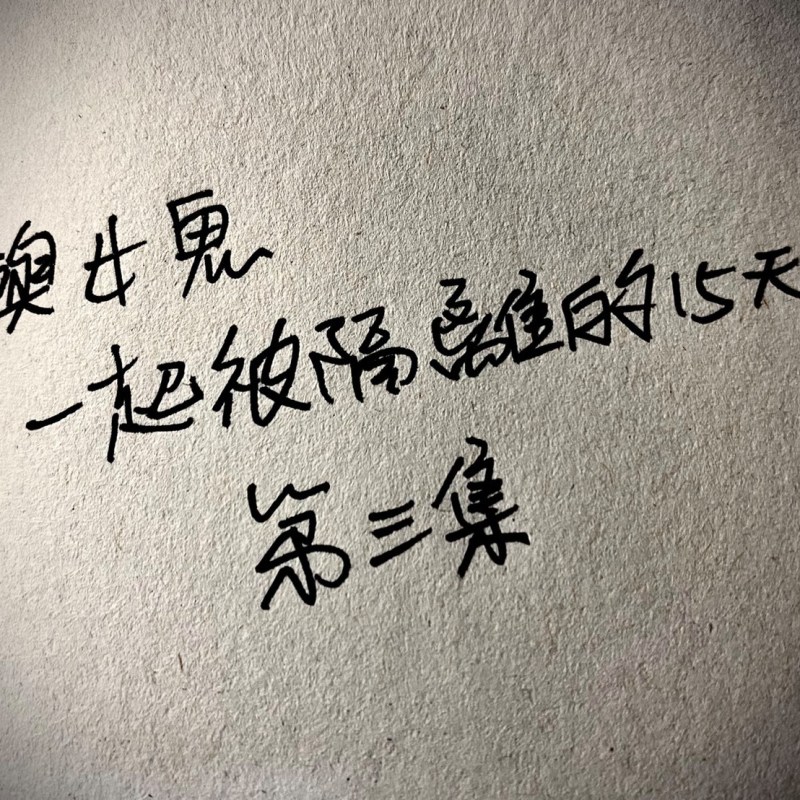 與女鬼
一起被隔離的15天
第三集